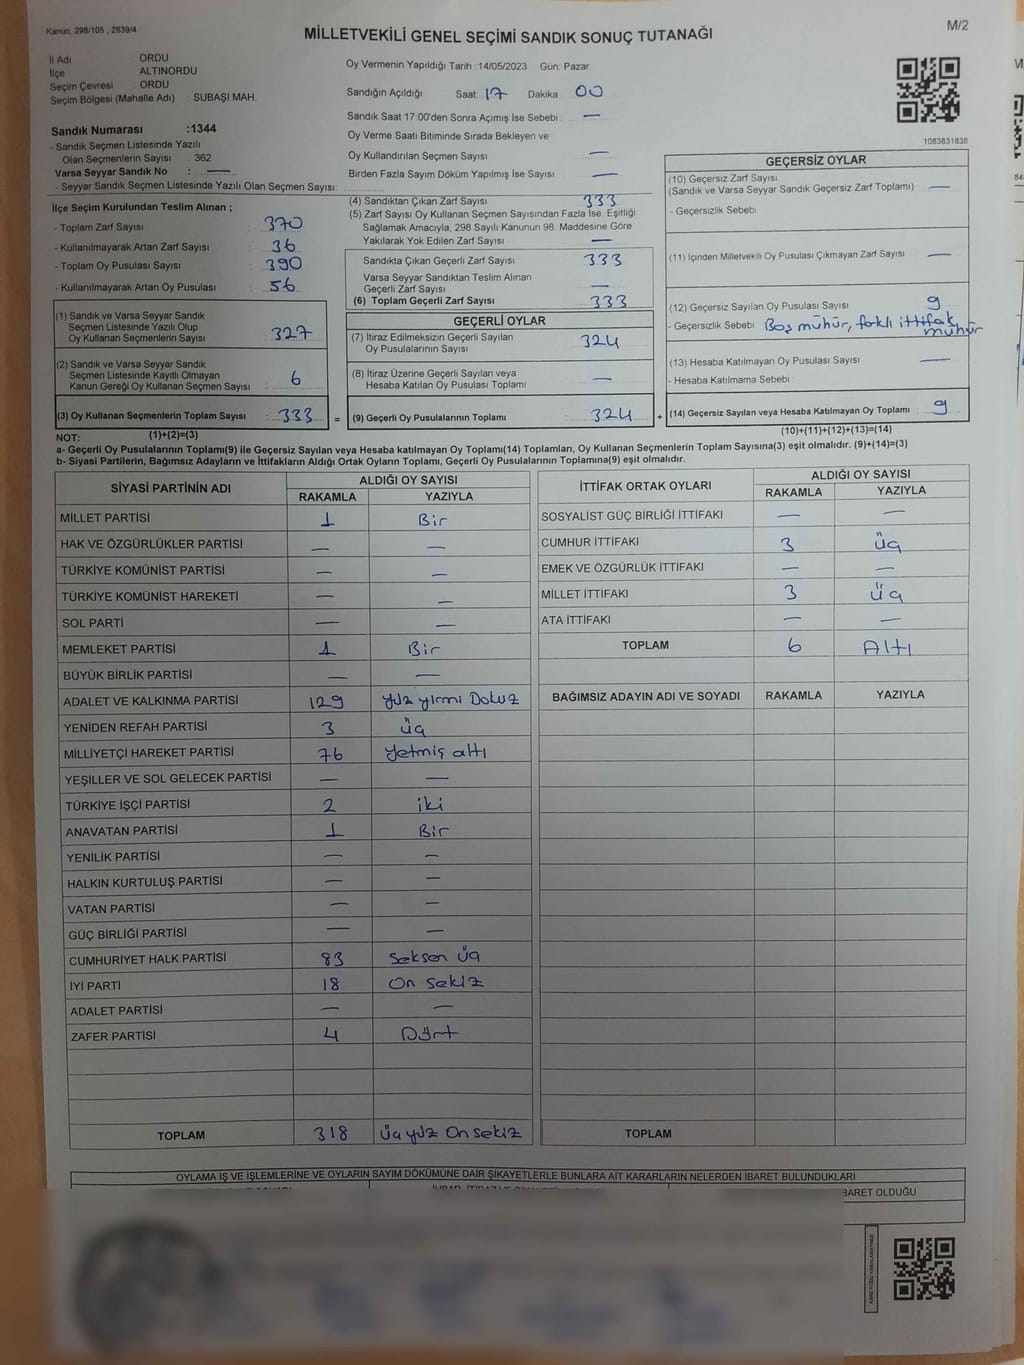 Kanun. 298/105 , 2839/4
MİLLETVEKİLİ GENEL SEÇİMİ SANDIK SONUÇ TUTANAĞI
M/2
İl Adı ORDU
İlçe ALTINORDU
Seçim Çevresi : ORDU
Seçim Bölgesi (Mahalle Adı) : SUBAŞI MAH.
Sandık Numarası :1344
- Sandık Seçmen Listesinde Yazılı
Olan Seçmenlerin Sayısı : 362
Varsa Seyyar Sandık No : —
- Seyyar Sandık Seçmen Listesinde Yazılı Olan Seçmen Sayısı:
Oy Vermenin Yapıldığı Tarih :14/05/2023 Gün: Pazar
Sandığın Açıldığı Saat: 17 Dakika 00
Sandık Saat 17:00'den Sonra Açımış İse Sebebi : —
Oy Verme Saati Bitiminde Sırada Bekleyen ve
Oy Kullandırılan Seçmen Sayısı —
Birden Fazla Sayım Döküm Yapılmış İse Sayısı —
1083831838
İlçe Seçim Kurulundan Teslim Alınan ;
- Toplam Zarf Sayısı : 370
- Kullanılmayarak Artan Zarf Sayısı : 36
- Toplam Oy Pusulası Sayısı : 390
- Kullanılmayarak Artan Oy Pusulası : 56
(1) Sandık ve Varsa Seyyar Sandık
Seçmen Listesinde Yazılı Olup
Oy Kullanan Seçmenlerin Sayısı : 327
(2) Sandık ve Varsa Seyyar Sandık
Seçmen Listesinde Kayıtlı Olmayan
Kanun Gereği Oy Kullanan Seçmen Sayısı : 6
(3) Oy Kullanan Seçmenlerin Toplam Sayısı : 333 =
(1)+(2)=(3)
(4) Sandıktan Çıkan Zarf Sayısı 333
(5) Zarf Sayısı Oy Kullanan Seçmen Sayısından Fazla İse. Eşitliği
Sağlamak Amacıyla, 298 Sayılı Kanunun 98. Maddesine Göre
Yakılarak Yok Edilen Zarf Sayısı —
Sandıkta Çıkan Geçerli Zarf Sayısı : 333
Varsa Seyyar Sandıktan Teslim Alınan
Geçerli Zarf Sayısı —
(6) Toplam Geçerli Zarf Sayısı 333
GEÇERLİ OYLAR
(7) İtiraz Edilmeksizin Geçerli Sayılan
Oy Pusulalarının Sayısı : 324
(8) İtiraz Üzerine Geçerli Sayılan veya
Hesaba Katılan Oy Pusulası Toplamı : —
(9) Geçerli Oy Pusulalarının Toplamı : 324 +
GEÇERSİZ OYLAR
(10) Geçersiz Zarf Sayısı
(Sandık ve Varsa Seyyar Sandık Geçersiz Zarf Toplamı) —
- Geçersizlik Sebebi
(11) İçinden Milletvekili Oy Pusulası Çıkmayan Zarf Sayısı —
(12) Geçersiz Sayılan Oy Pusulası Sayısı 9
- Geçersizlik Sebebi Boş mühür, farklı ittifak
mühür
(13) Hesaba Katılmayan Oy Pusulası Sayısı —
- Hesaba Katılmama Sebebi
(14) Geçersiz Sayılan veya Hesaba Katılmayan Oy Toplamı : 9
(10)+(11)+(12)+(13)=(14)
NOT:
a- Geçerli Oy Pusulalarının Toplamı(9) ile Geçersiz Sayılan veya Hesaba katılmayan Oy Toplamı(14) Toplamları, Oy Kullanan Seçmenlerin Toplam Sayısına(3) eşit olmalıdır. (9)+(14)=(3)
b- Siyasi Partilerin, Bağımsız Adayların ve İttifakların Aldığı Ortak Oyların Toplamı, Geçerli Oy Pusulalarının Toplamına(9) eşit olmalıdır.
SİYASİ PARTİNİN ADI ALDIĞI OY SAYISI
RAKAMLA YAZIYLA
MİLLET PARTİSİ 1 Bir
HAK VE ÖZGÜRLÜKLER PARTİSİ — —
TÜRKİYE KOMÜNİST PARTİSİ — —
TÜRKİYE KOMÜNİST HAREKETİ — —
SOL PARTİ — —
MEMLEKET PARTİSİ 1 Bir
BÜYÜK BİRLİK PARTİSİ — —
ADALET VE KALKINMA PARTİSİ 129 Yüz yirmi Dokuz
YENİDEN REFAH PARTİSİ 3 üç
MİLLİYETÇİ HAREKET PARTİSİ 76 Yetmiş altı
YEŞİLLER VE SOL GELECEK PARTİSİ — —
TÜRKİYE İŞÇİ PARTİSİ 2 iki
ANAVATAN PARTİSİ 1 Bir
YENİLİK PARTİSİ — —
HALKIN KURTULUŞ PARTİSİ — —
VATAN PARTİSİ — —
GÜÇ BİRLİĞİ PARTİSİ — —
CUMHURİYET HALK PARTİSİ 83 Seksen üç
İYİ PARTİ 18 On sekiz
ADALET PARTİSİ — —
ZAFER PARTİSİ 4 Dört
TOPLAM 318 üç yüz On sekiz
İTTİFAK ORTAK OYLARI ALDIĞI OY SAYISI
RAKAMLA YAZIYLA
SOSYALİST GÜÇ BİRLİĞİ İTTİFAKI — —
CUMHUR İTTİFAKI 3 üç
EMEK VE ÖZGÜRLÜK İTTİFAKI — —
MİLLET İTTİFAKI 3 üç
ATA İTTİFAKI — —
TOPLAM 6 Altı
BAĞIMSIZ ADAYIN ADI VE SOYADI RAKAMLA YAZIYLA
TOPLAM
OYLAMA İŞ VE İŞLEMLERİNE VE OYLARIN SAYIM DÖKÜMÜNE DAİR ŞİKAYETLERLE BUNLARA AİT KARARLARIN NELERDEN İBARET BULUNDUKLARI
BARET OLDUĞU